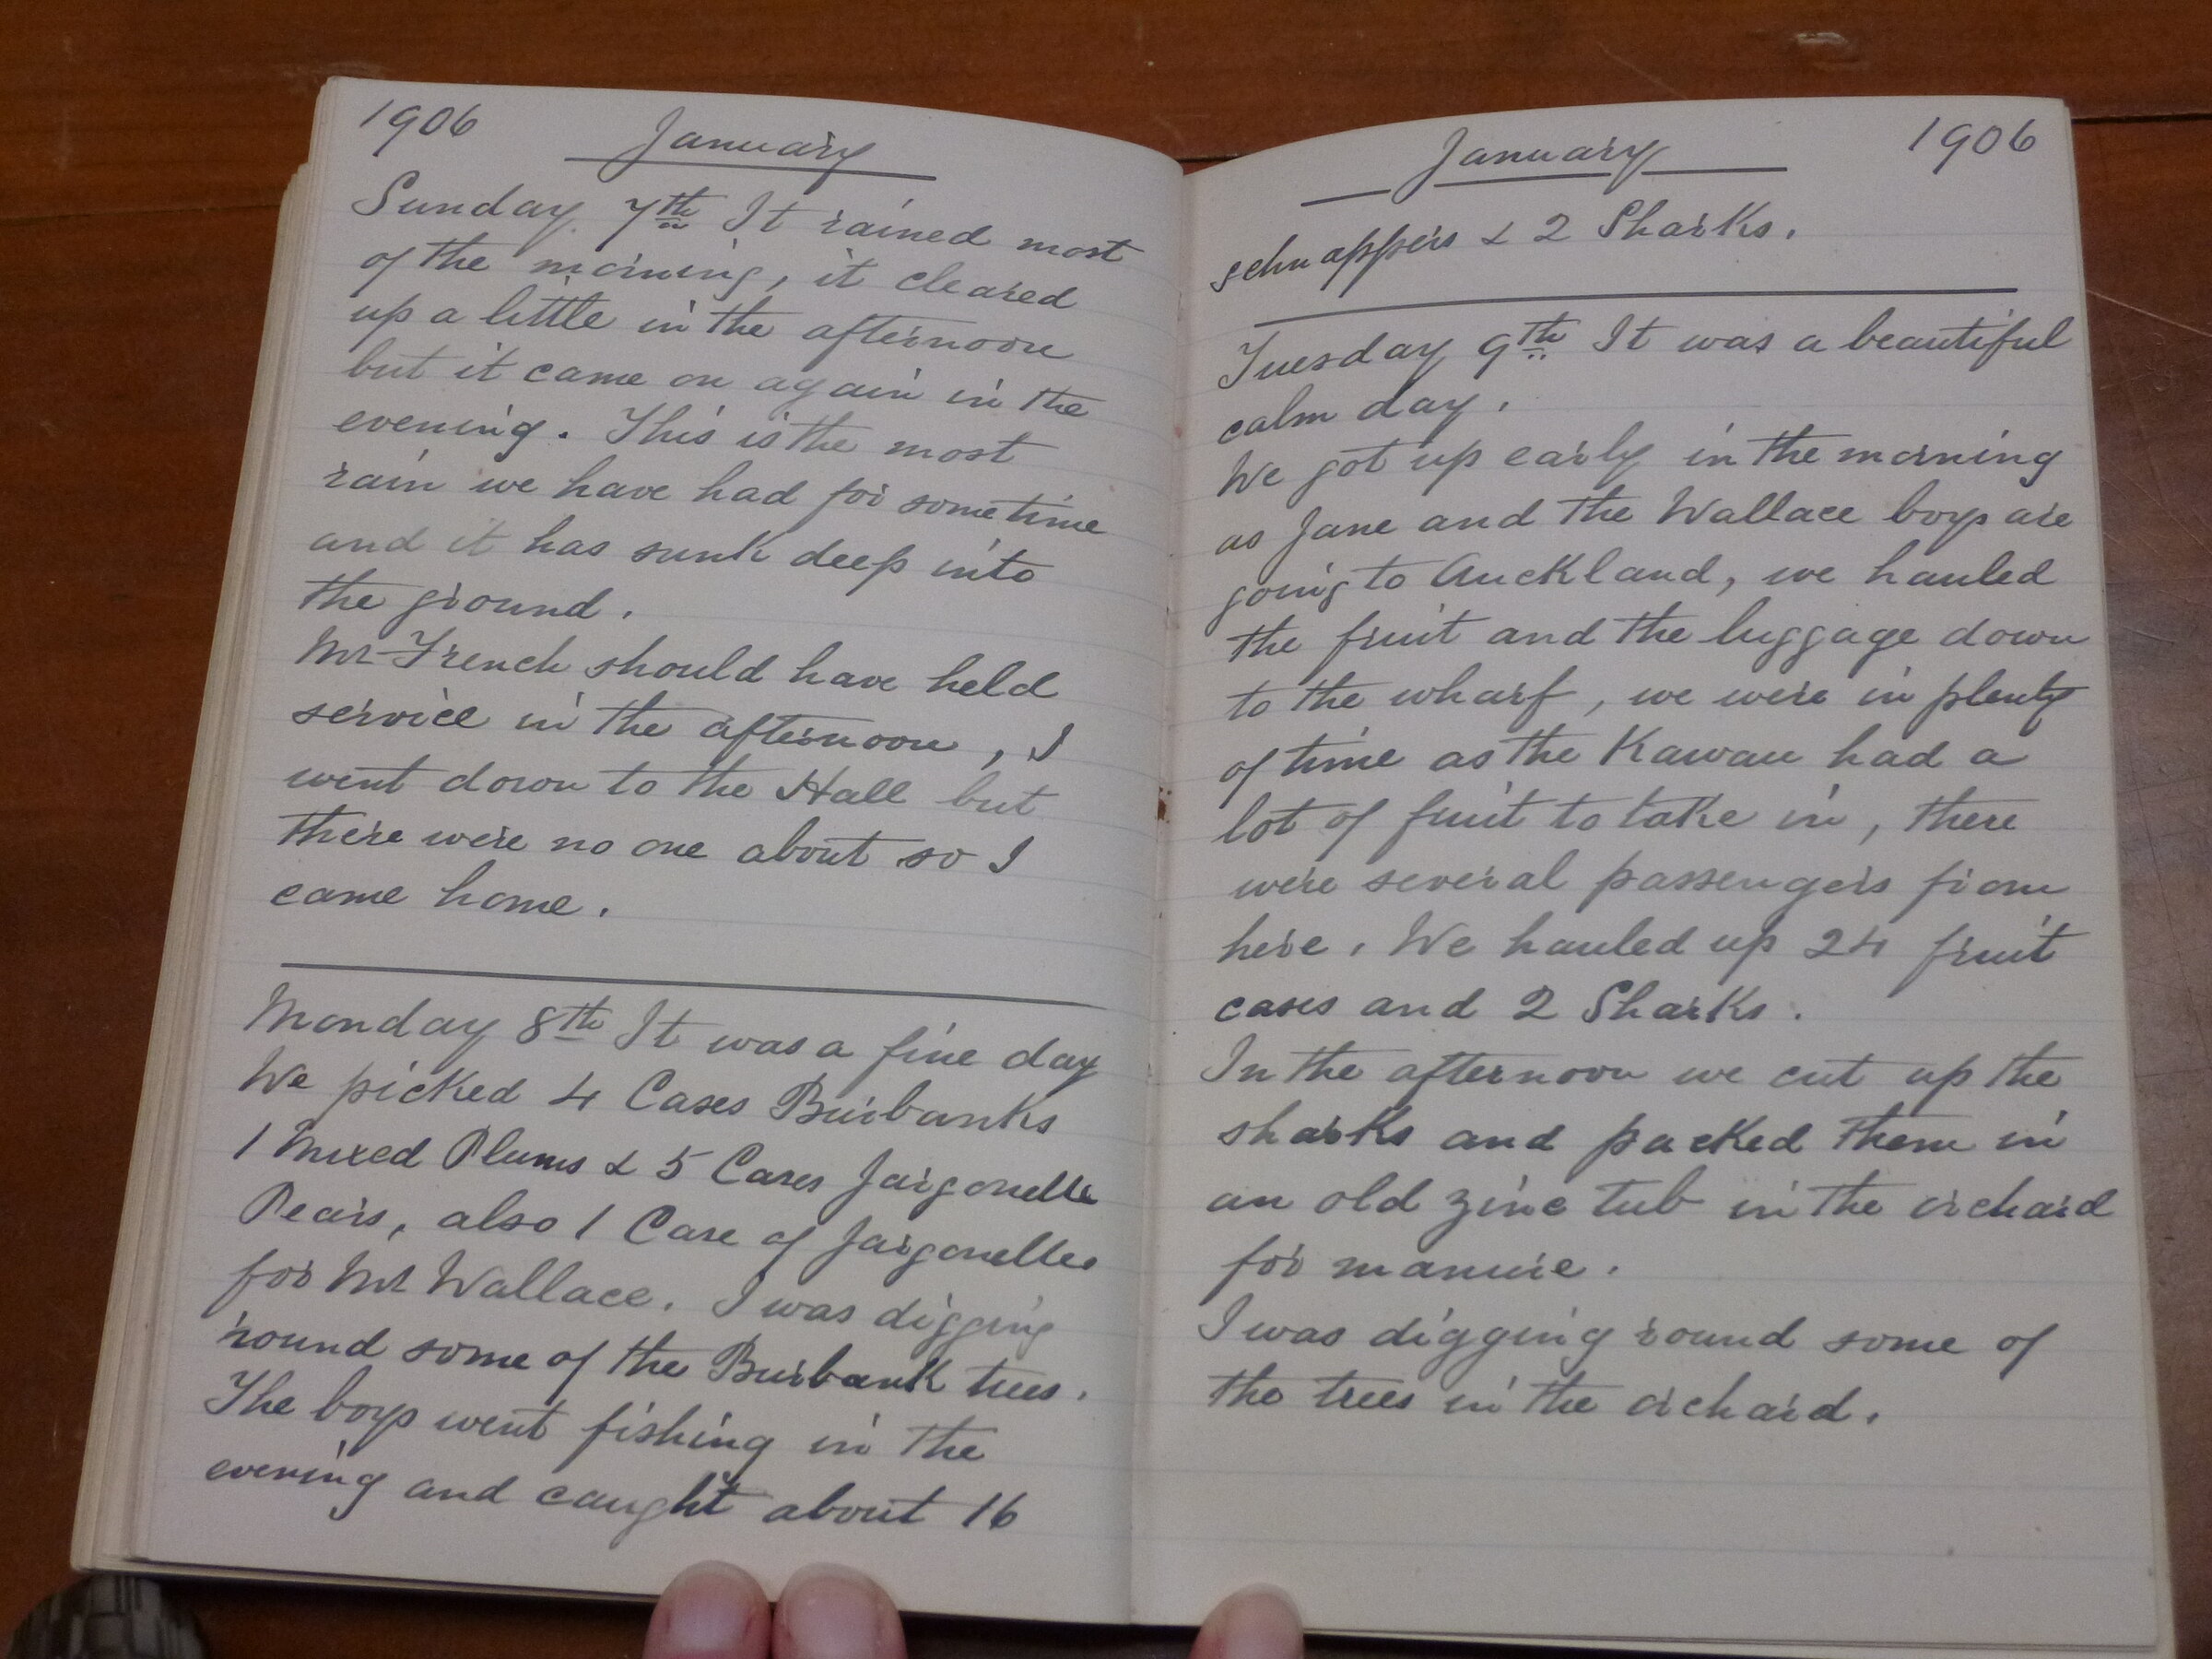 1906
January
Sunday 7th It rained most
of the morning, it cleared
up a little in the afternoon
but it came on again in the
evening. This is the most
rain we have had for sometime
and it has sunk deep into
the ground.
Mr French should have held
service in the afternoon, I
went down to the Hall but
there were no one about so I
came home.
Monday 8th It was a fine day
We picked 4 Cases Burbanks
1 Mixed Plums & 5 Cases Jargonelle
Pears, also 1 Case of Jargonelles
for Mr Wallace. I was digging
round some of the Burbank trees.
The boys went fishing in the
evening and caught about 16
January
1906
schnappers & 2 Sharks.
Tuesday 9th It was a beautiful
calm day.
We got up early in the morning
as Jane and the Wallace boys are
going to Auckland, we hauled
the fruit and the luggage down
to the wharf, we were in plenty
of time as the Kawau had a
lot of fruit to take in, there
were several passengers from
here. We hauled up 24 fruit
cases and 2 Sharks.
In the afternoon we cut up the
sharks and packed them in
an old zinc tub in the orchard
for manure.
I was digging round some of
the trees in the orchard.